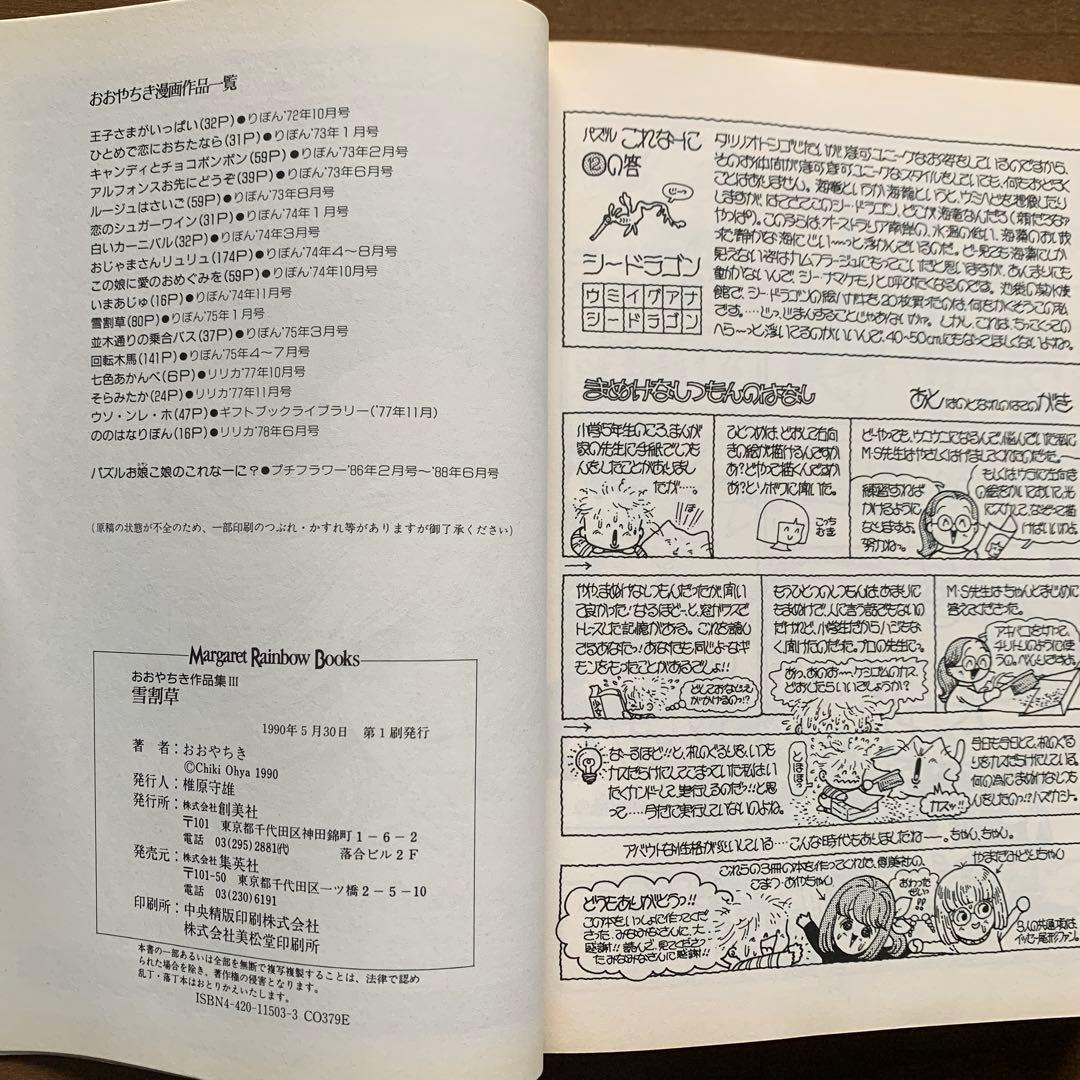 おおやちき漫画作品一覧
王子さまがいっぱい(32P)●りぼん'72年10月号
ひとめで恋におちたなら(31P)●りぼん'73年1月号
キャンディとチョコボンボン(59P)●りぼん'73年2月号
アルフォンスお先にどうぞ(39P)●りぼん'73年6月号
ルージュはさいご(59P)●りぼん'73年8月号
恋のシュガーワイン(31P)●りぼん'74年1月号
白いカーニバル(32P)●りぼん'74年3月号
おじゃまさんリュリュ(174P)●りぼん'74年4〜8月号
この娘に愛のおめぐみを(59P)●りぼん'74年10月号
いまあじゅ(16P)●りぼん'74年11月号
雪割草(80P)●りぼん'75年1月号
並木通りの乗合バス(37P)●りぼん'75年3月号
回転木馬(141P)●りぼん'75年4〜7月号
七色あかんべ(6P)●リリカ'77年10月号
そらみたか(24P)●リリカ'77年11月号
ウソ・ンレ・ホ(47P)●ギフトブックライブラリー('77年11月)
ののはなりぼん(16P)●リリカ'78年6月号
パズルお娘こ娘のこれなーに?●プチフラワー'86年2月号〜'88年6月号
(原稿の状態が不全のため、一部印刷のつぶれ・かすれ等がありますが御了承ください)
Margaret Rainbow Books
おおやちき作品集III
雪割草
1990年5月30日 第1刷発行
著者:おおやちき
©Chiki Ohya 1990
発行人:椎原守雄
発行所:株式会社創美社
〒101 東京都千代田区神田錦町1-6-2
電話 03(295)2881代 落合ビル2F
発売元:株式会社集英社
〒101-50 東京都千代田区一ツ橋2-5-10
電話 03(230)6191
印刷所:中央精版印刷株式会社
株式会社美松堂印刷所
本書の一部あるいは全部を無断で複写複製することは、法律で認め
られた場合を除き、著作権の侵害となります。
乱丁・落丁本はおとりかえいたします。
ISBN4-420-11503-3 C0379E
パズル これなーに
⑫の答
じーっ
シードラゴン
ウミイグアナ
シードラゴン
タツノオトシゴじたいが摩可ユニークなお姿をしているのですから、
そのお仲間が摩可摩可ユニークなスタイルをしていても、何もおどろく
ことはありません。海竜というか海龍というと、ウミヘビを想像したり
しますが、はてさてこのシードラゴン、どこが海竜なんだろ(顔だろな
やっぱ)。この子らは、オーストラリア南岸の、水温の低い、海藻のおい茂
った静かな海にじぃ〜っと浮かんでいるのだ。ど一見ても海藻にしか
見えない姿はカムフラージュにもってこいだと思いますが、あんまりにも
動かないんで、シーナマケモノと呼びたくなるのです。池袋の某水族
館で、シードラゴンの絵ハガキを20枚買ったのは、何をかくそうこの私
です。……じっ、じまんすることじゃあないか?。しかし、これは、ちっこくっての
へら〜っと浮いてるのがいいんで、40〜50cmにもなってほしくないよねっ。
まぬけなしつもんのはなし
あとはのとなれのはての がき
小学5年生のころ、まんが
家の先生に手紙でしつも
んをしたことがありまし
たが……。
ひとつめは、どおして右向
きの絵が描けるんですか
あ?どやって描くんですか
あ?とソボクに聞いた。
こっち
むき
ど-やっても、ウゴウゴになるんで、悩んでいた私に
M・S先生はやさしくはげましてくれたのだった。
練習すれば
かけるように
なりますよ。
努力ねっ。
もしくはウラに左向き
の絵をかいておいて、光
にスカして、なぞって描
けばいいわよ。
やや、まぬけなしつもんだったが、聞い
て良かった!なるほど-っと、窓ガラスで
トレースした記憶がある。これを読ん
でるあなたっ!あなたも同じよ-なギ
モンをもったことがあるでしょ!!
どしておなじえ
がかけるのっ!?
もうひとつのしつもんは、あまりに
もまぬけで、人に言う話でもないの
だけれど、小学生だからハジもな
く聞けたのだわ。プロの先生に。
あっ、あのお-ケシゴムのカス、
どおしたらいいでしょうか?
M・S先生はちゃんとまじめに
答えてださった。
アキバコを切って、
チリトリのように使
うの。べんりですよ。
な〜るほど!!と、机のぐるりを、いつも
カスだらけにしてこまっていた私はい
たくカンドーして、実行しるのだっ!!と思
って……今だに実行していないのよね。
とほほ?
カスッ!!
今日も今日とて、机のぐる
りをカスだらけにしている。
何の為にまぬけなしつも
んをしたのっ!?ハズカシー。
アバウトな性格が災いしている……こんな時代もありましたね―。ちゃん、ちゃん。
どうもありがとうっ!!
この本をいっしょに作ってくだ
さった、みなみなさんに、大
感謝!!読んで、見てくださっ
たみなみなさんに感謝!!
これらの3冊の本を作ってくれた、創美社の、
こまつ・あやちゃん
おわった
ぜいっ
!!
やまだなおとちゃん
3人の共通項は、
イッセー尾形ファン。